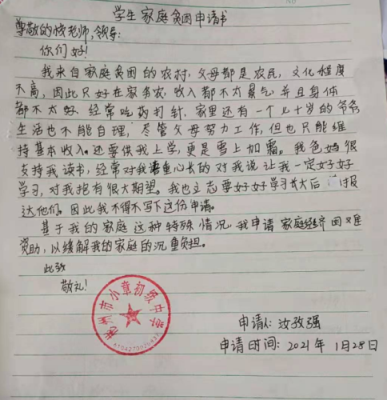 学生家庭贫困申请书
尊敬的校老师,领导:
你们好!
我来自家庭贫困的农村,父母都是农民,文化程度
不高,因此只好在家务农,收入都不太景气,并且身体
都不太好,经常吃药打针,家里还有一个七十岁的爷爷
生活也不能自理,尽管父母努力工作,但也只能维
持基本收入。还要供我上学,更是雪上加霜。我爸妈很
支持我读书,经常对我语重心长的对我说让我一定好好
学习,对我抱有很大期望。我也立志要好好学习长大后 报
达他们。因此我不得不写下这份申请。
基于我的家庭这种特殊情况,我申请家庭经济困难
资助,以缓解我的家庭的沉重负担。
此致
敬礼!
州市小章初级中学
申请人:汝孜强
申请时间:2021年1月28日